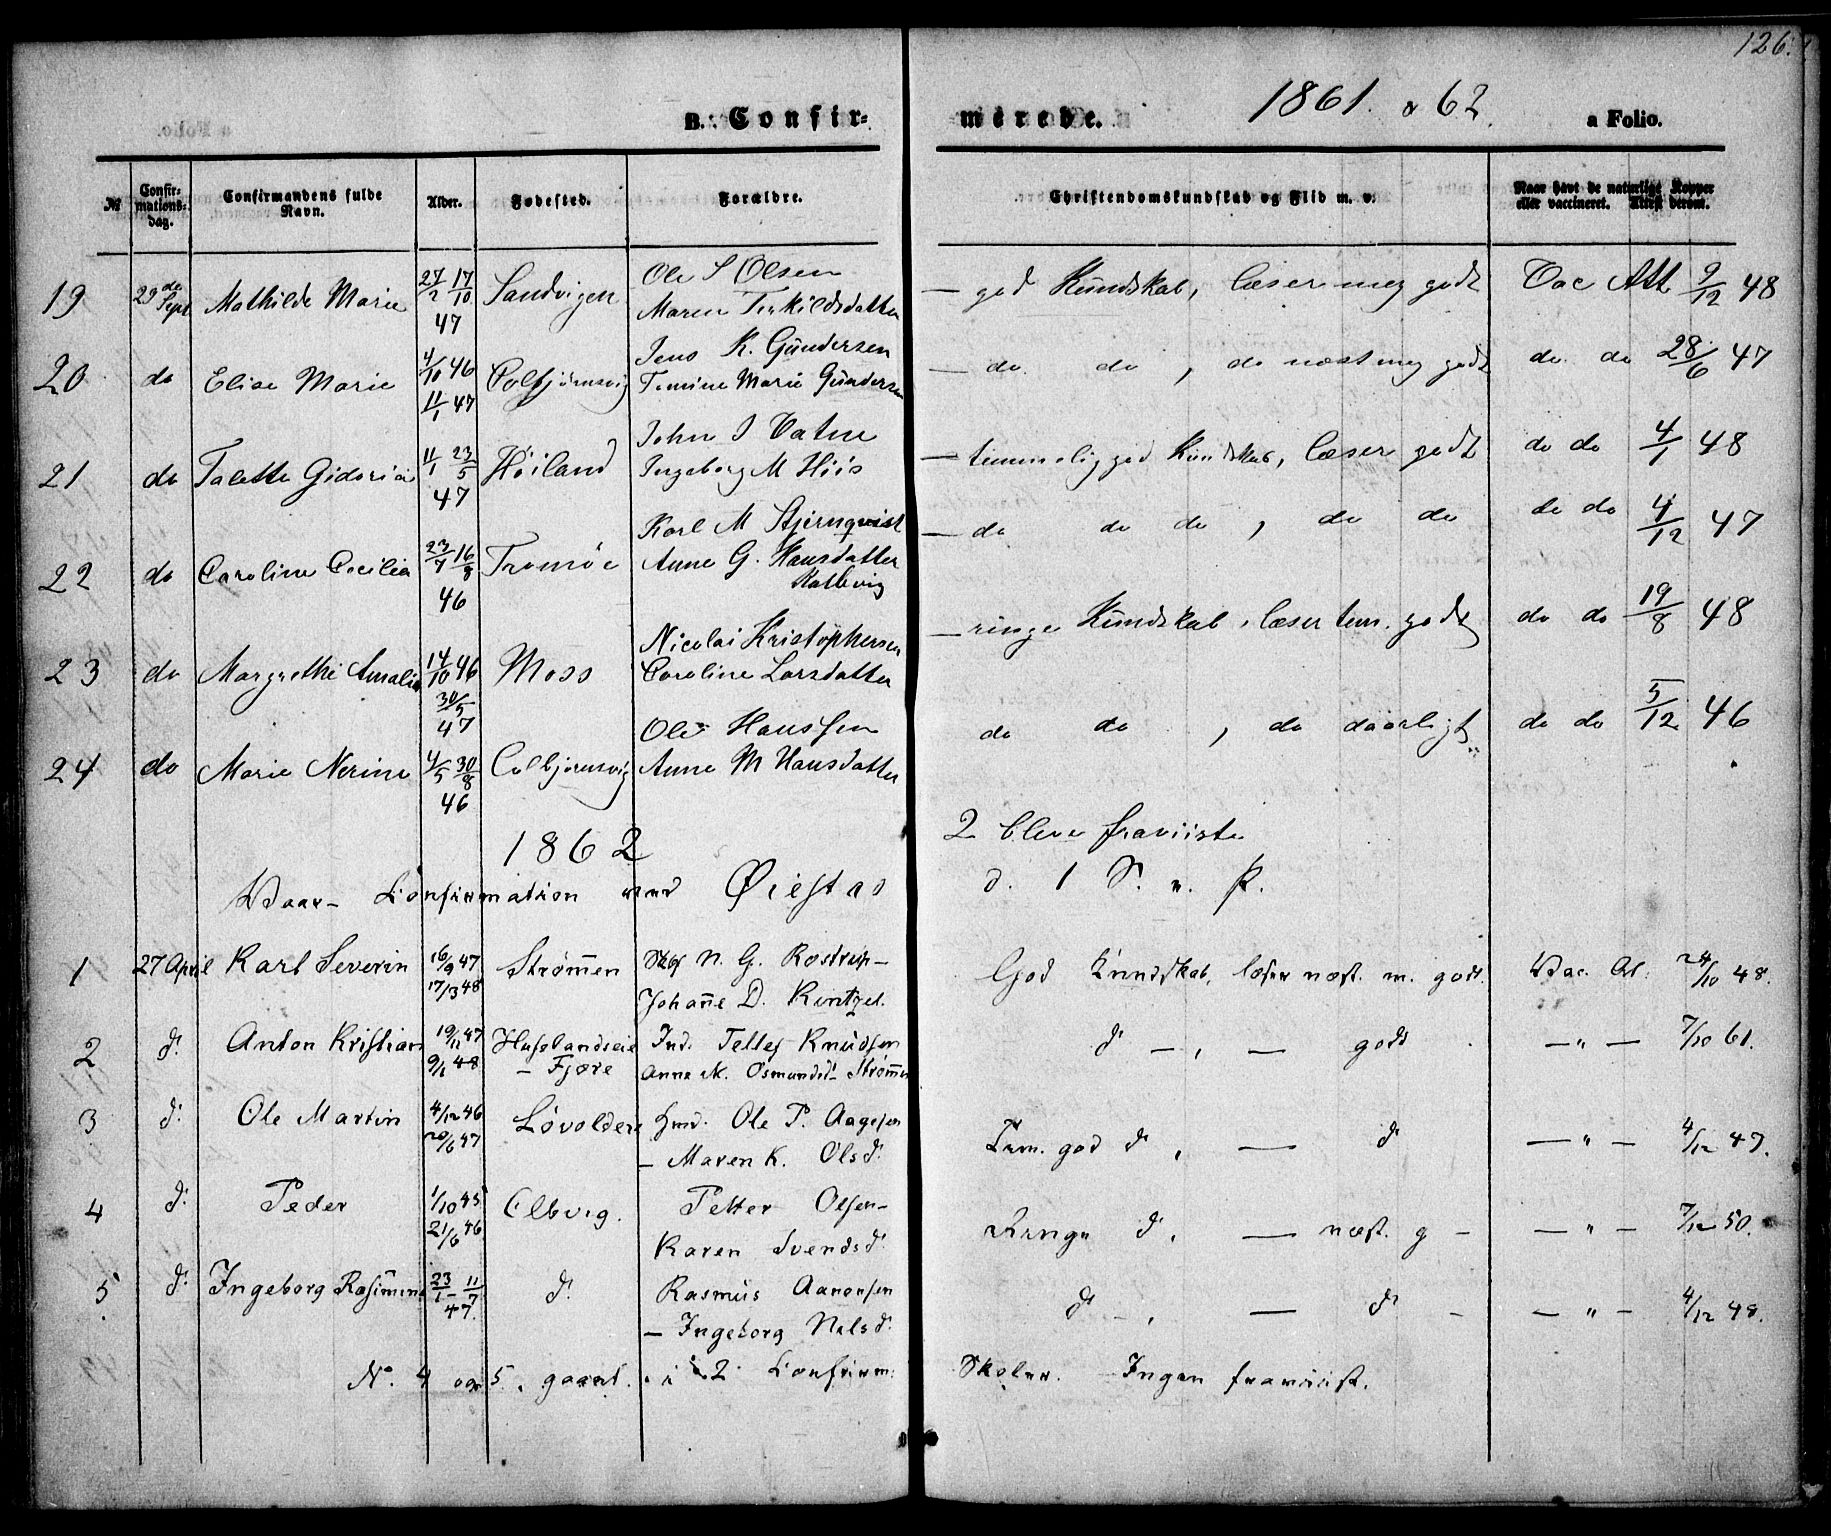 126.
B. Confirmerede. 1861. & 62. a Folio.
№ Confirmations-dag. Confirmandens fulde Navn. Alder. Fødested. Forældre. Christendomskundskab og Flid m. v. Naar havt de naturlige Kopper eller vaccineret. Attest derom.
Ole S Olsen
19 29de Sept Mathilde Marie 27/2 17/10 47 Sandvigen Maren Terkildsdatter — god Kundskab, læser meg godt Vac Att 9/12 48
Jens K. Gündersen
20 do Elise Marie 4/10 46 11/1 47 Colbjørnsvig Tomine Marie Gündersen — do do, do næst meg godt do do 28/6 47
John J Vatne
21 do Talette Gidoria 11/1 23/5 47 Høiland Ingeborg M Hiis — temmelig god Kundskab, læser godt do do 4/1 48
Karl M Stjernqvist
22 do Caroline Cecilia 23/7 16/8 46 Tromøe Anne G. Hansdatter — do do do, do do do do 4/12 47
Nicolai Kristophersen
23 do Margrethe Amalia 14/10 46 30/5 47 Moss Caroline Larsdatter — ringe Kundskab, læser tem. godt do do 19/8 48
Ole Hanssen
24 do Marie Nerine 4/5 30/8 46 Colbjørnsvig Anne M Hansdatter do do, do daarligt do do 5/12 46
2 bleve fraviiste
1862
Vaar-Confirmation ved Øiestad d. 1 S. e. P.
1 27 April Karl Severin 16/9 47 17/3 48 Strømmen N. G. Rostrup — God Kundskab, læser næst. m. godt. Vac. At. 24/10 48.
Johanne D. Kintzel.
2 d. Anton Kristian 19/11 47 9/1 48 Ind. Tellef Knudsen d — , — godt — " — 7/10 61.
— Fjære Anne M. Osmundsd. Strømmen
3 d. Ole Martin 4/12 46 20/6 47 Løvolden Gmd. Ole P. Aagesen Tem. god d, — d — " — 4/12 47.
— Maren K. Olsd.
4 d. Peder 1/10 45 21/6 46 Elbvig. Petter Olsen — Ringe d, — næst. g — — " — 7/12 50.
Karen Svendsd.
5 d. Ingeborg Rasimine 23/1 — 11/7 47. d. Rasmus Aanonsen d — , — d — — " — 4/12 48.
— Ingeborg Nilsd.
No. 4 og 5. gaaet. i 2 Confirm. Skoler. Ingen fraviist.